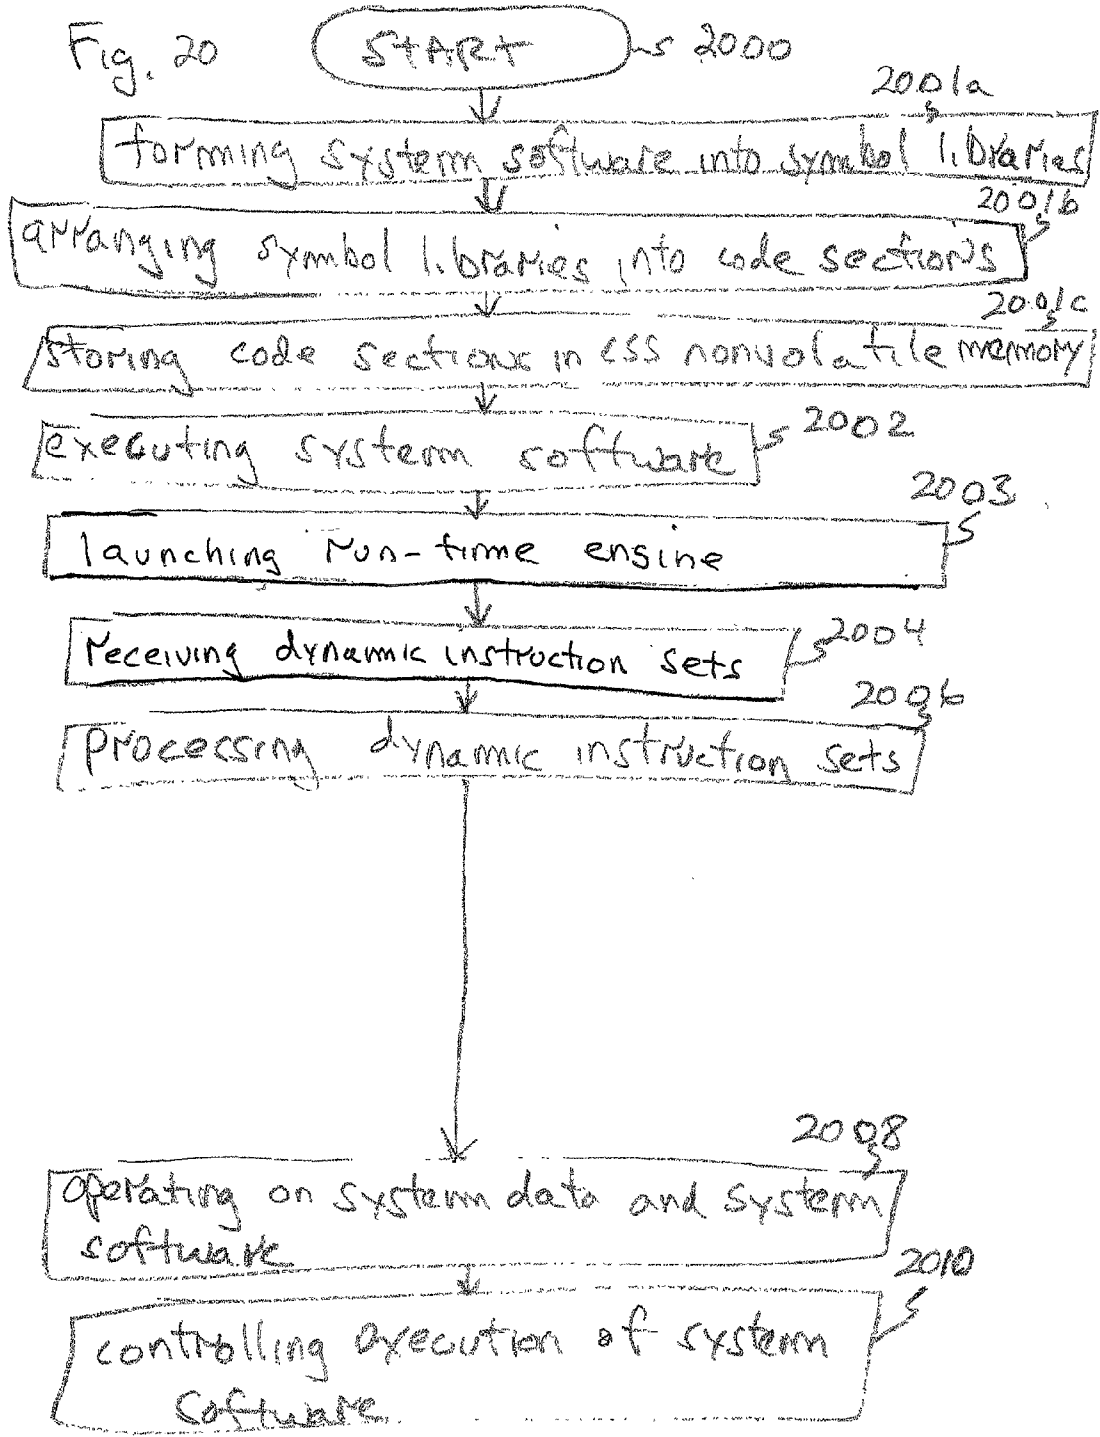 Fig. 20 START 2000
2001a
forming system software into symbol libraries
2001b
arranging symbol libraries into code sections
2001c
storing code sections in CSS nonvolatile memory
executing system software 2002
2003
launching run-time engine
2004
receiving dynamic instruction sets
2006
processing dynamic instruction sets
2008
operating on system data and system
software
2010
controlling execution of system
software